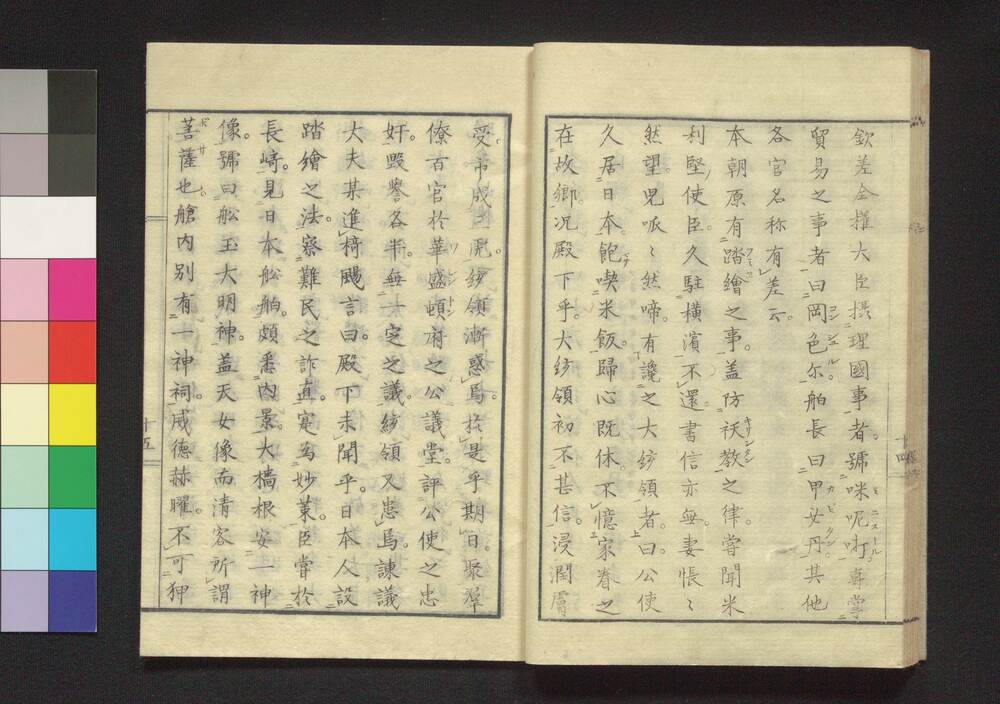 欽差全權大臣摂理國事者。號咪呢吋專掌
貿易之事者。曰岡色尔。舶長曰甲必丹。其他
各官名称有差云。
本朝原有踏繪之事。盖防祆教之律。甞聞米
利堅使臣。久駐横濱。不還。書信亦無。妻悵〻
然望。児呱〻然啼。有讒之大統領者。曰。公使
久居日本。飽喫米飯。歸心既休。不憶家眷之
在故郷。况殿下乎。大統領初不甚信。浸潤膚
受。市成三虎。統領漸惑焉。於是乎期日。聚群
僚百官於華盛頓府之公議堂。評公使之忠
奸。毀譽各半。無一定之議。統領又患焉。諫議
大夫某進椅颺言曰。殿下未聞乎。日本人設
踏繪之法。察難民之詐直。寔為妙策。臣甞於
長崎。見日本舩舶。頗悉内景。大檣根安一神
像。號曰舩玉大明神。盖天女像而清客所謂
菩薩也。艙内別有一神祠。威德赫曜。不可狎
十四
十五
コンシユル
ミニストル
カピタン
フミエ
キリシタン
ワシントン
ボサ